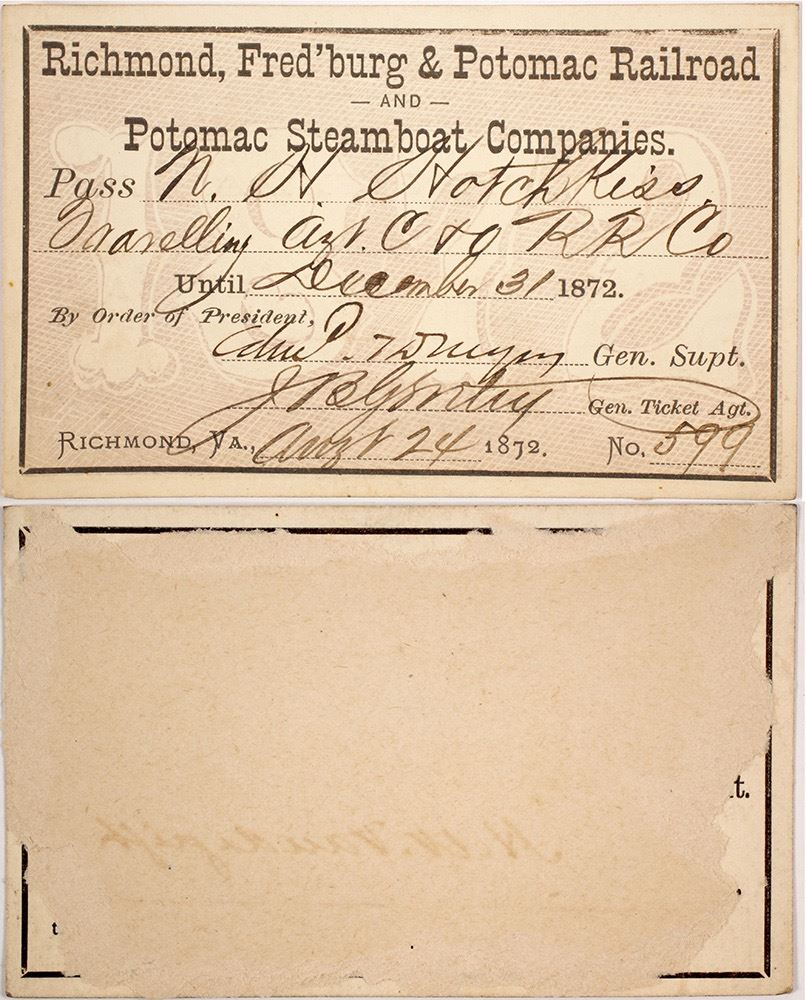 Richmond, Fred'burg & Potomac Railroad
— AND —
Potomac Steamboat Companies.
Pass N. H. Hotchkiss.
Travelling Agt. C & O R R Co
Until December 31 1872.
By Order of President,
Gen. Supt.
Gen. Ticket Agt.
RICHMOND, VA., Augt 24 1872. No. 599
t.
t